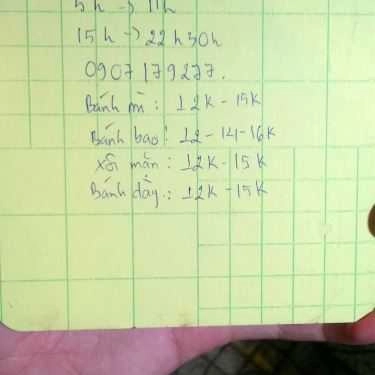 5h -> 11h
15h -> 22h30h
0907179277.
Bánh mì: 12K - 15K
Bánh bao: 12 - 14 - 16K
xôi mặn: 12K - 15K
Bánh dầy: 12K - 15K